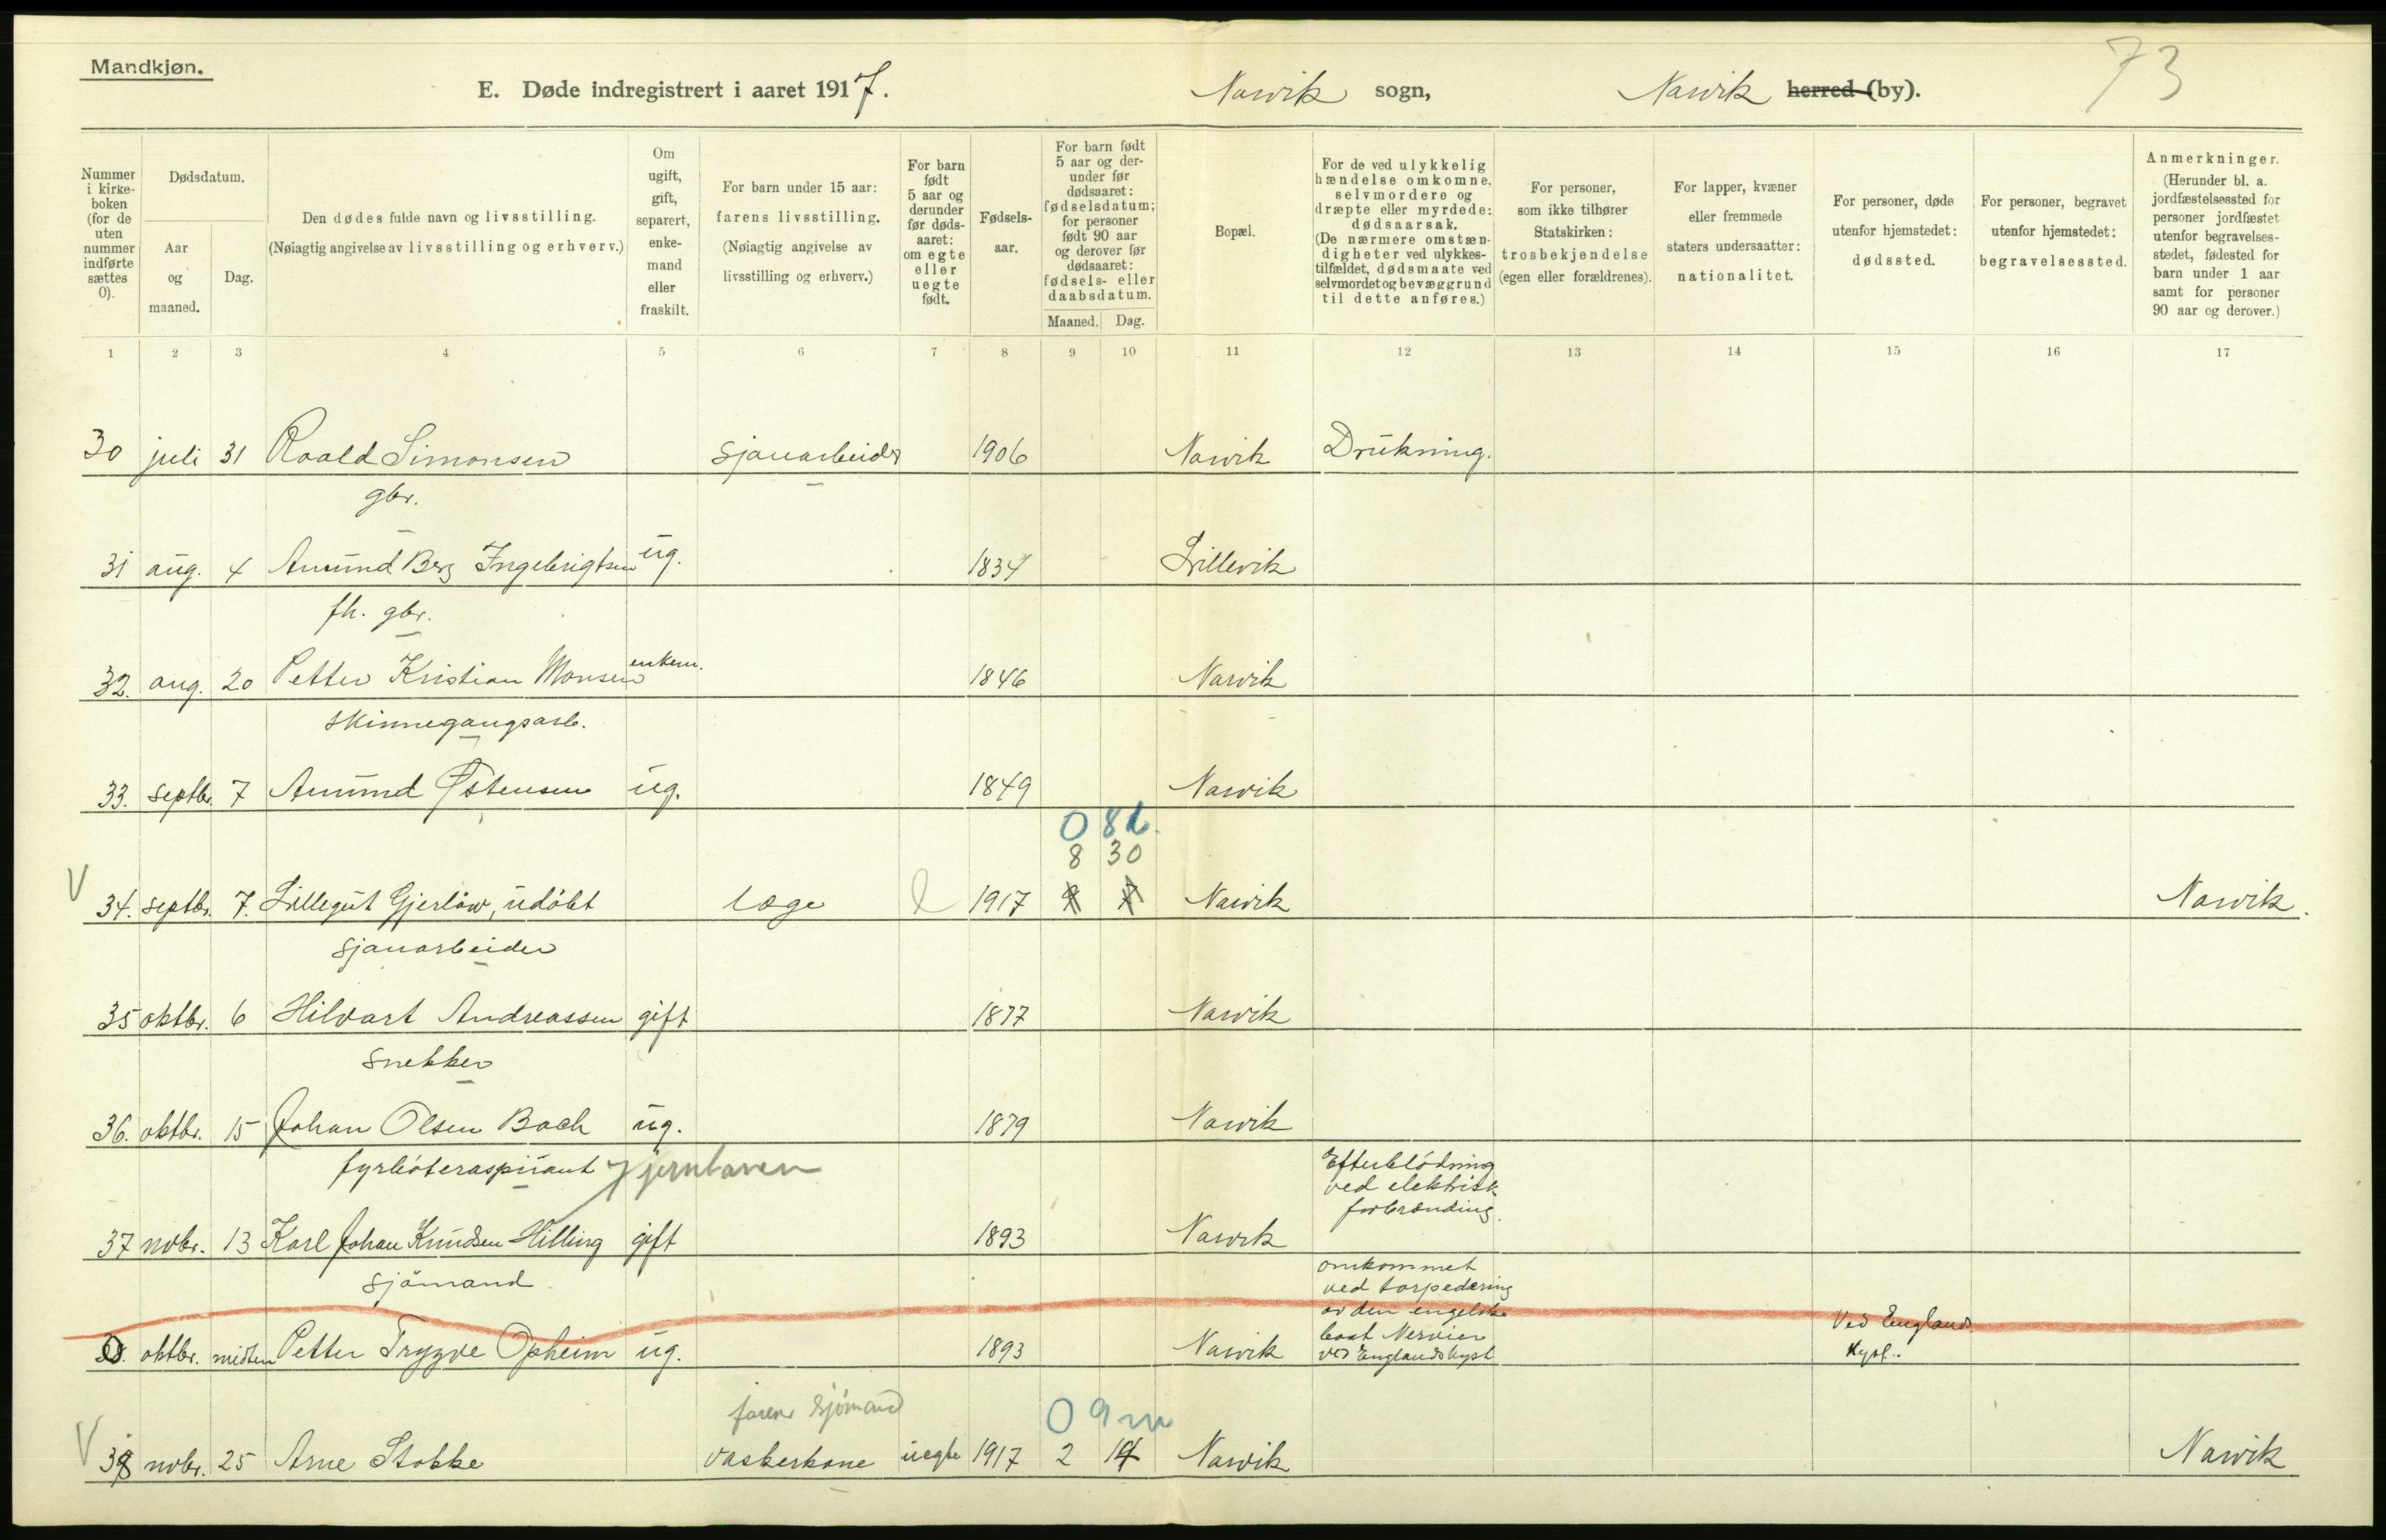 Mandkjøn.
73
E. Døde indregistrert i aaret 1917. Narvik sogn, Narvik herred (by).
Nummer i kirkeboken (for de uten nummer indførte sættes 0).
Dødsdatum.
Aar og maaned.
Dag.
Den dødes fulde navn og livsstilling.
(Nøiagtig angivelse av livsstilling og erhverv.)
Om ugift, gift, separert, enkemand eller fraskilt.
For barn under 15 aar: farens livsstilling.
(Nøiagtig angivelse av livsstilling og erhverv.)
For barn født 5 aar og derunder før dødsaaret: om egte eller uegte født.
Fødselsaar.
For barn født 5 aar og derunder før dødsaaret: fødselsdatum; for personer født 90 aar og derover før dødsaaret: fødsels- eller daabsdatum.
Maaned. Dag.
Bopæl.
For de ved ulykkelig hændelse omkomne, selvmordere og dræpte eller myrdede: dødsaarsak.
(De nærmere omstændigheter ved ulykkestilfældet, dødsmaate ved selvmordet og bevæggrund til dette anføres.)
For personer, som ikke tilhører Statskirken: trosbekjendelse (egen eller forældrenes).
For lapper, kvæner eller fremmede staters undersaatter: nationalitet.
For personer, døde utenfor hjemstedet: dødssted.
For personer, begravet utenfor hjemstedet: begravelsessted.
Anmerkninger.
(Herunder bl. a. jordfæstelsessted for personer jordfæstet utenfor begravelsesstedet, fødested for barn under 1 aar samt for personer 90 aar og derover.)
1 2 3 4 5 6 7 8 9 10 11 12 13 14 15 16 17
30 juli 31 Roald Simonsen sjauarbeider 1906 Narvik Drukning.
gbr.
31 aug. 4 Amund Berg Ingebrigtsen ug. 1834 Lillevik
fh. gbr.
32. aug. 20 Petter Kristian Monsen enkem. 1846 Narvik
skinnegangsarb.
33. septbr. 7 Amund Østensen ug. 1849 Narvik
0 8
8 30
V 34. septbr. 7. Lillegut Gjerløw, udøbt læge 1917 Narvik Narvik.
sjauarbeider
35 oktbr. 6 Hilvart Andreassen gift 1877 Narvik
snekker
36. oktbr. 15 Johan Olsen Bach ug. 1879 Narvik
fyrbøteraspirant Jernbanen
Efterblødning
ved elektrisk
forbrænding.
37 novbr. 13 Karl Johan Knudsen Hilling gift 1893 Narvik
sjømand
omkommet
ved torpedering
av den engelske
baat Nervier
ved Englands kyst
oktbr. midten Petter Trygve Opheim ug. 1893 Narvik
Ved Englands
kyst.
faren sjømand
0 9 m
V 38 novbr. 25 Arne Stokke vaskerkone uegte 1917 2 14 Narvik Narvik